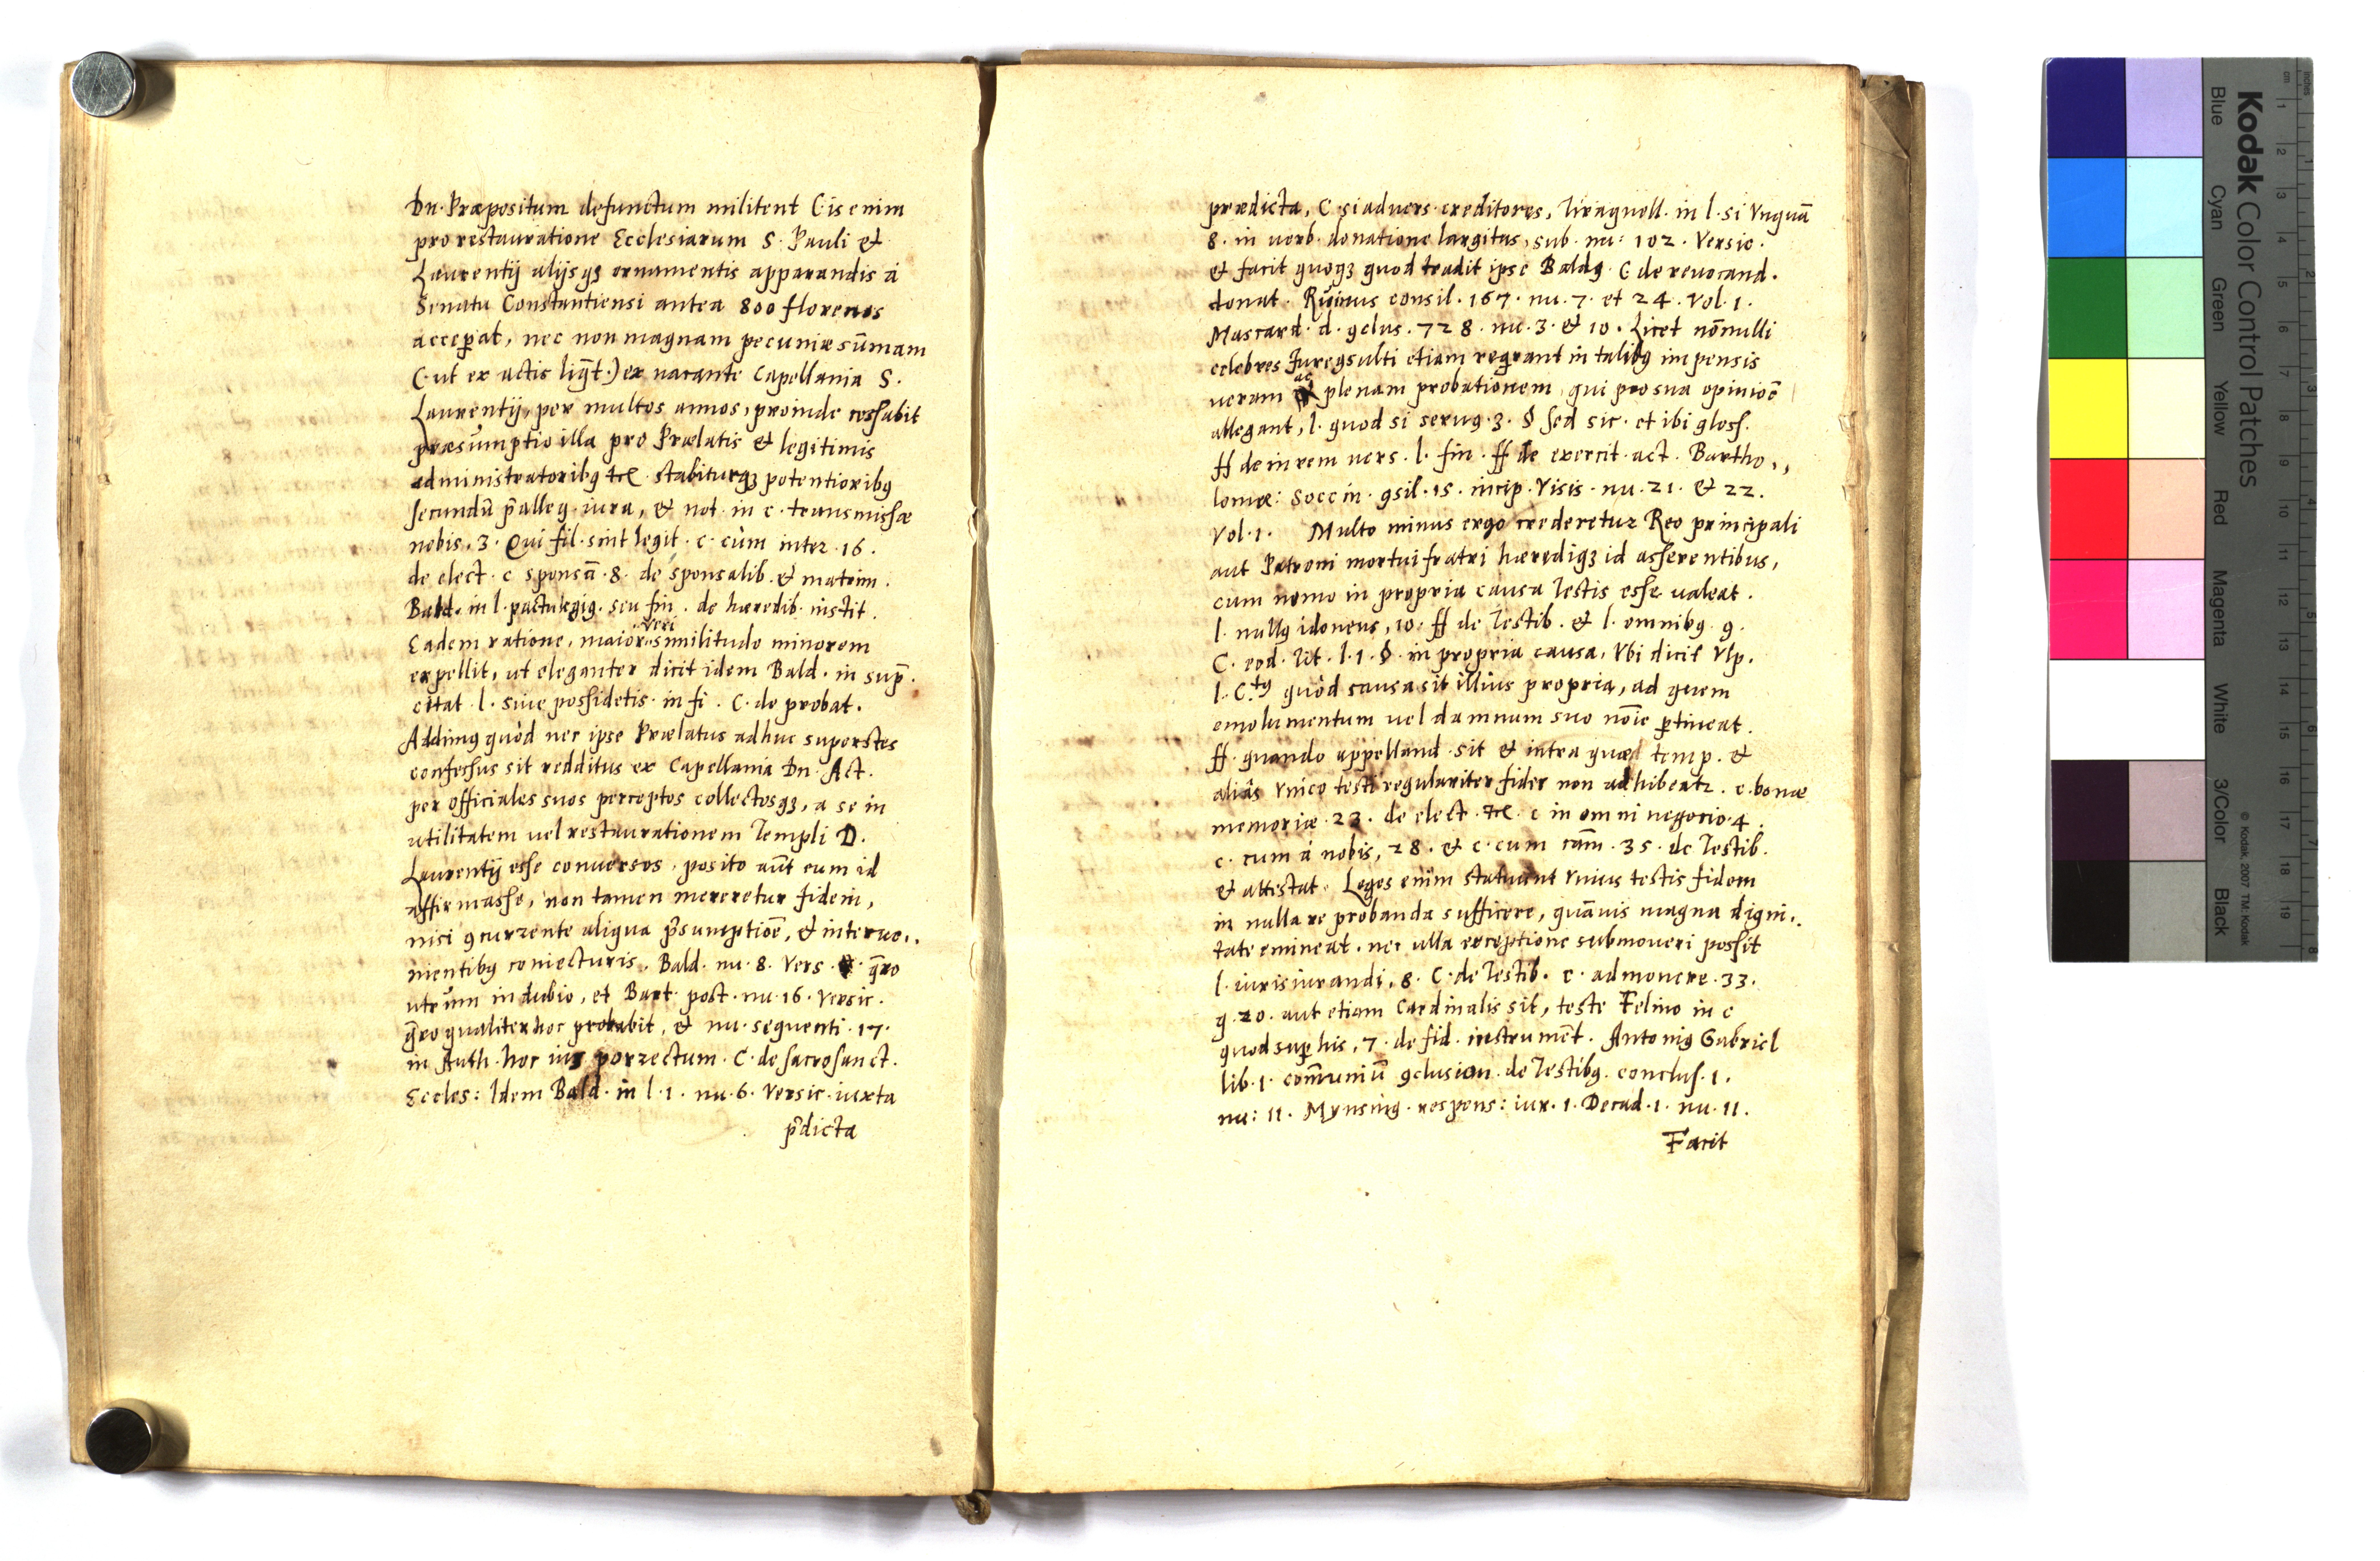 Dn. Præpositum defunctum militent (is enim
pro restauratione Ecclesiarum S. Pauli &
Laurentij alijsqȝ ornamentis apparandis à
Senatu Constantiensi antea 800 florenos
acceꝑat, nec non magnam pecuniæ sum̄am
(ut ex actis liq̄t.) ex uacante Capellania S.
Laurentij, per multos annos, proinde cessabit
præsumptio illa pro Prælatis & legitimis
administratoribꝫ etc. stabiturqȝ potentioribꝫ
secundū p̄alleg. iura, & not. in c. transmissæ
nobis. 3. Qui fil. sint legit. c. cùm inter. 16.
de elect. c. sponsā. 8. de sponsalib. & matrim.
Bald. in l. seu fin. de hæredib. instit.
Eadem ratione, maior uerisimilitudo minorem
expellit, ut eleganter dicit idem Bald. in sup̄.
citat. l. siue possidetis. in fi. C. de probat.
Addimꝰ quòd nec ipse Prælatus adhuc superstes
confessus sit redditus ex Capellania Dn. Act.
per officiales suos perceptos collectosqȝ, a se in
utilitatem uel restaurationem Templi D.
Laurentij esse conuersos. posito aūt eum id
affirmasse, non tamen mereretur fidem,
nisi ꝯcurrente aliqua p̄sumptiōe, & interue,,
nientibꝰ coniecturis. Bald. nu. 8. Vers. q̄ro
utrùm in dubio, et Bart. post. nu. 16. Versic.
q̄ro qualiter hoc probabit, & nu. sequenti. 17.
in Auth. hoc ius porrectum. C. de sacrosanct.
Eccles: Idem Bald. in l. 1. nu. 6. Versic. iuxta
p̄dicta
prædicta, C. si aduers. creditores, Tiraquell. in l. si Vnquā
8. in uerb. donatione largitus, sub. nu: 102. Versic.
& facit quoqȝ quod tradit ipse Baldꝰ. C. de reuocand.
donat. Ruinus consil. 167. nu. 7. et 24. Vol. 1.
Mascard. d. ꝯclus. 728. nu. 3. & 10. Licet nōnulli
celebres Jureꝯsulti etiam reqrant in talibꝰ impensis
ueram ac plenam probationem, qui pro sua opiniōe
allegant, l. quod si seruꝰ. 3. § sed sic. et ibi gloss.
ff de in rem uers. l. fin. ff de exercit. act. Bartho,,
lomæ: Soccin. ꝯsil. 15. incip. Visis. nu. 21. & 22.
Vol. 1. Multo minus ergo crederetur Reo principali
aut Patroni mortui fratri hæredíqȝ id asserentibus,
cum nemo in propria causa Testis esse ualeat.
l. nullꝰ idoneus, 10. ff de Testib. & l. omnibꝰ. 9.
C. eod. tit. l. 1. §. in propria causa, Vbi dicit Vlp.
l. C.tꝰ quòd causa sit illius propria, ad quem
emolumentum uel damnum suo nōie ꝑtineat.
ff. quando appelland. sit & intra quæ temp. &
aliàs Vnico testi regulariter fides non adhibeatr. c. bonæ
memoriæ. 23. de elect. etc. c. in omni negocio. 4.
c. cum à nobis, 28. & c. cum cām. 35. de Testib.
& attestat. Leges enim statuunt Vnius testis fidem
in nulla re probanda sufficere, quāuis magna digni,,
tate emineat. nec ulla exceptione submoueri possit
l. iurisiurandi, 8. C. de Testib. c. admonere. 33.
q. 20. aut etiam Cardinalis sit, teste Felino in c
quod suꝑ his, 7. de fid. instrumēt. Antonius Gabriel
lib. 1. com̄uniū ꝯclusion. de Testibꝰ. conclus. 1.
nu: 11. Mynsing. respons: iur. 1. Decad. 1. nu. 11.
Facit
Kodak Color Control Patches
Blue Cyan Green Yellow Red Magenta White 3/Color Black
© Kodak, 2007 TM: Kodak
cm 1 2 3 4 5 6 7 8 9 10 11 12 13 14 15 16 17 18 19
inches 1 2 3 4 5 6 7 8